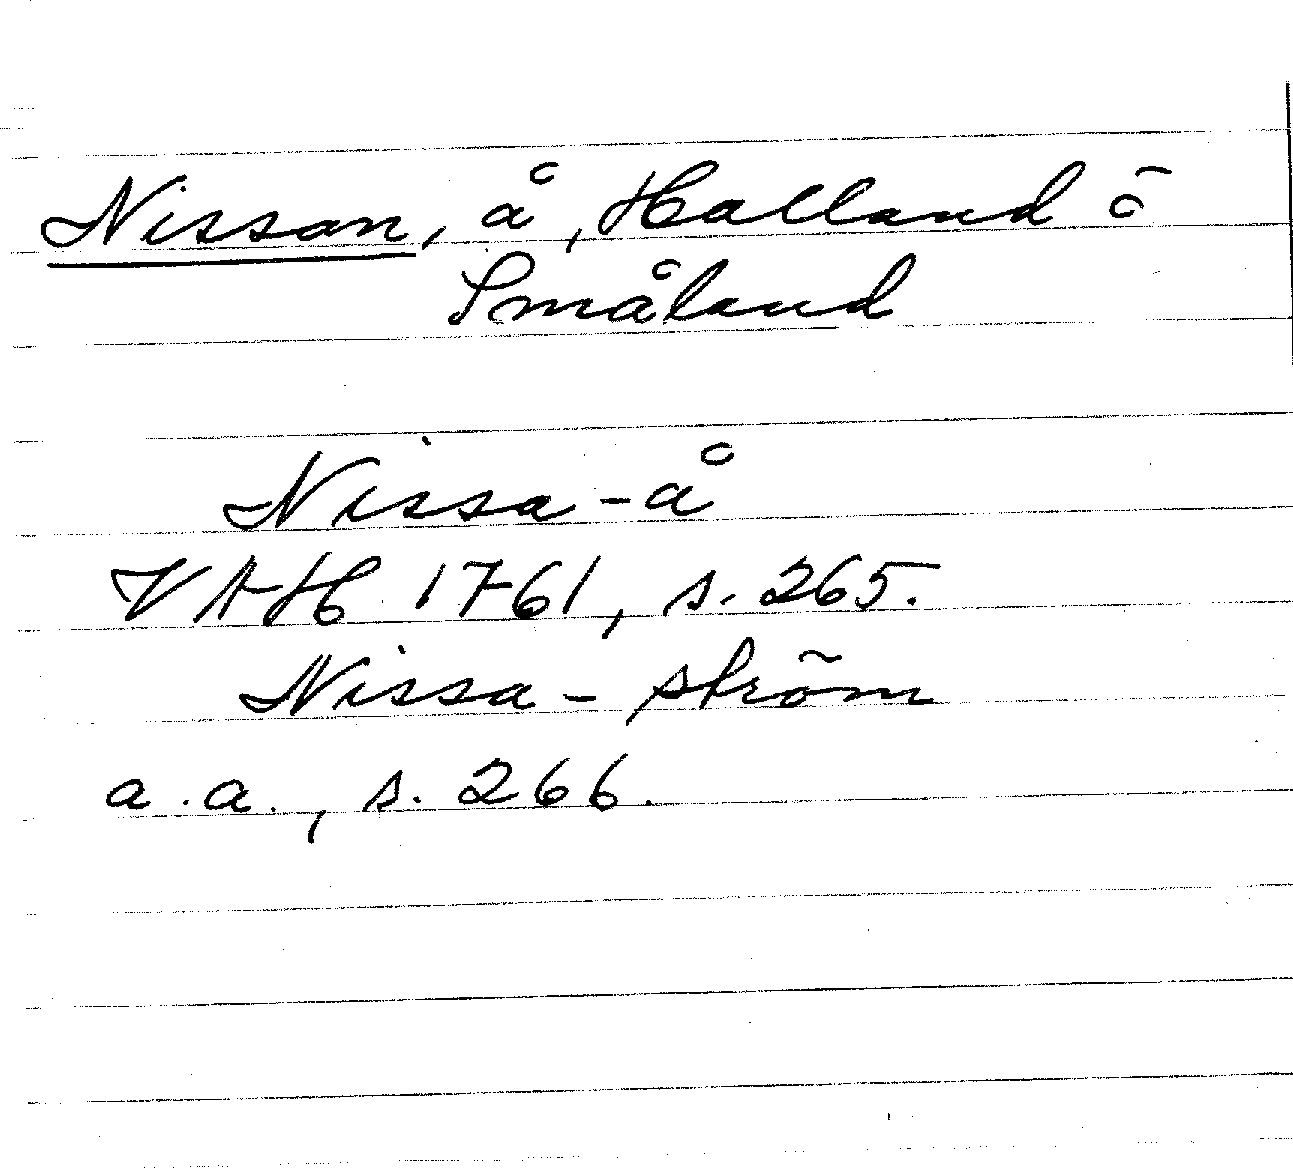 Nissan, å, Halland ö
Småland
Nissa-å
VAH 1761, s. 265.
Nissa-ström
a.a., s. 266.